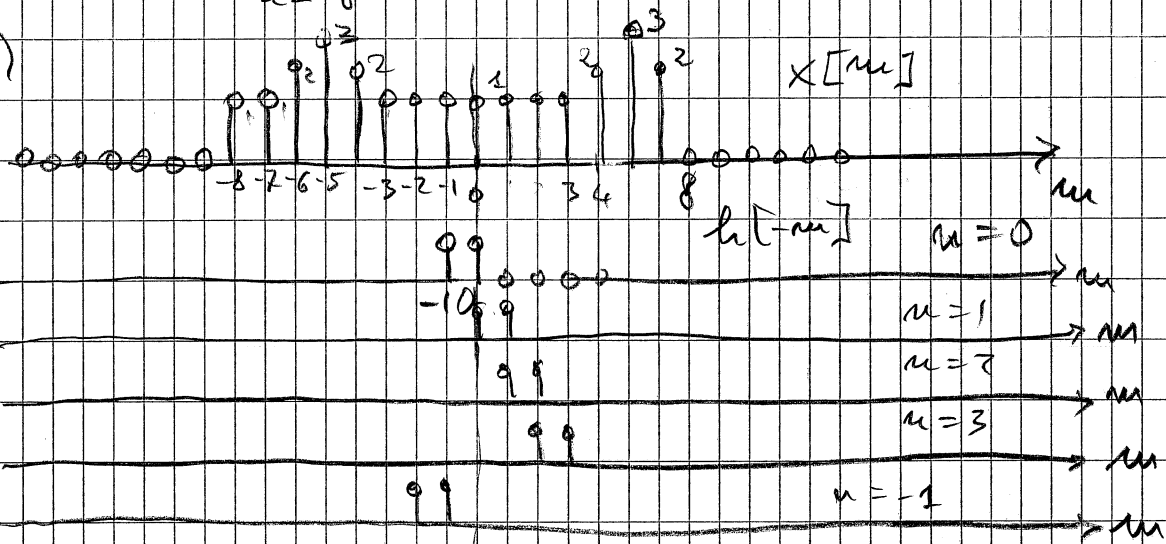 3
3 2 2 1 2 2 x[m]
-8 -7 -6 -5 -3 -2 -1 0 3 4 8 m
h[-m] n=0
m
-1 0 n=1
m
n=2
m
n=3
m
n=-1
m